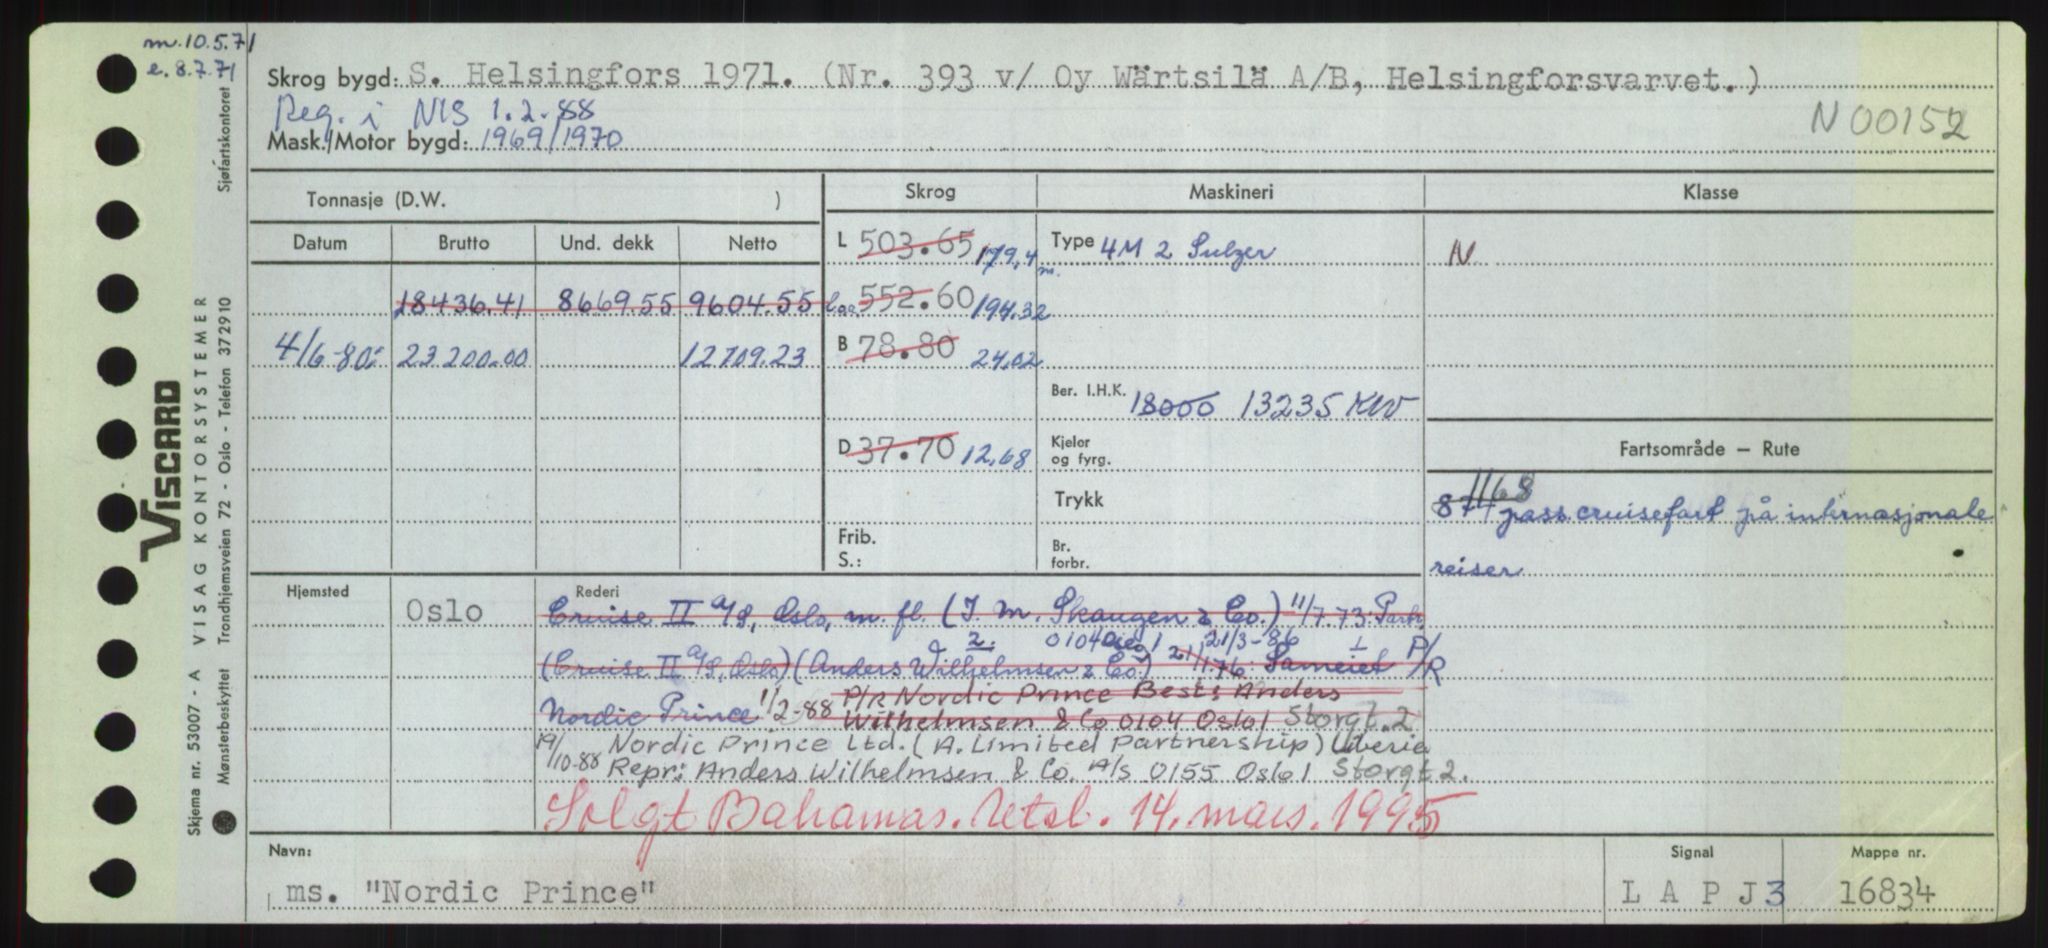 m. 10.5.71
e. 8.7.71
Skrog bygd: S. Helsingfors 1971. (Nr. 393 v/ Oy Wärtsilä A/B, Helsingforsvarvet.)
Reg. i NIS 1.2.-88
N 00152
Mask./Motor bygd: 1969/1970
Tonnasje (D.W. )
Skrog
Maskineri
Klasse
Datum Brutto Und. dekk Netto
L 503.65 179,4 m.
Type 4M 2 Sulzer
N
18436.41 8669.55 9604.55
Loa 552.60 194.32
4/6-80: 23200.00 12709.23
B 78.80 24,02
Ber. I.H.K. 18000 13235 KW
D 37.70 12,68
Kjeler
og fyrg.
Fartsområde – Rute
Trykk
1168
874 pass. cruisefart på internasjonale
reiser
Frib.
S.:
Br.
forbr.
Hjemsted
Rederi
Oslo
Cruise II A/S, Oslo, m. fl. (I. M. Skaugen & Co.) 11/7.73: Partr.
2. 0104 Oslo 1 21/3-86
(Cruise II A/S, Oslo) (Anders Wilhelmsen & Co.) 21/1.76: Sameiet P/R
Nordic Prince 1/2-88 P/R Nordic Prince Best: Anders
Wilhelmsen & Co 0104 Oslo 1 Storgt. 2
19/10-88 Nordic Prince Ltd. (A. Limited Partnership) Liberia
Repr: Anders Wilhelmsen & Co. A/S 0155 Oslo 1 Storgt 2.
Solgt Bahamas. Utsl. 14. mars. 1995
Navn:
ms. "Nordic Prince"
Signal
L A P J 3
Mappe nr.
16834
VISCARD
Skjema nr. 53007 - A VISAG KONTORSYSTEMER
Mønsterbeskyttet Trondhjemsveien 72 - Oslo - Telefon 372910 Sjøfartskontoret